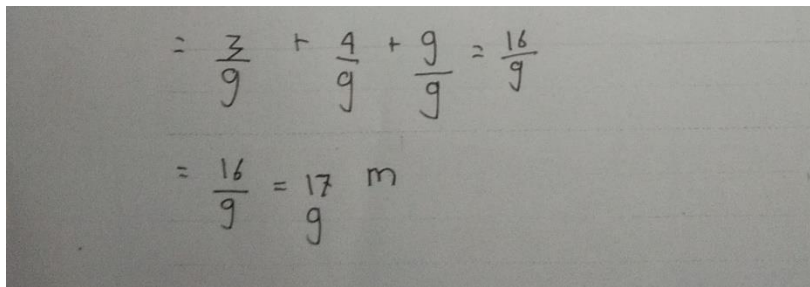 = 3/9 + 4/9 + 9/9 = 16/9
= 16/9 = 17/9 m